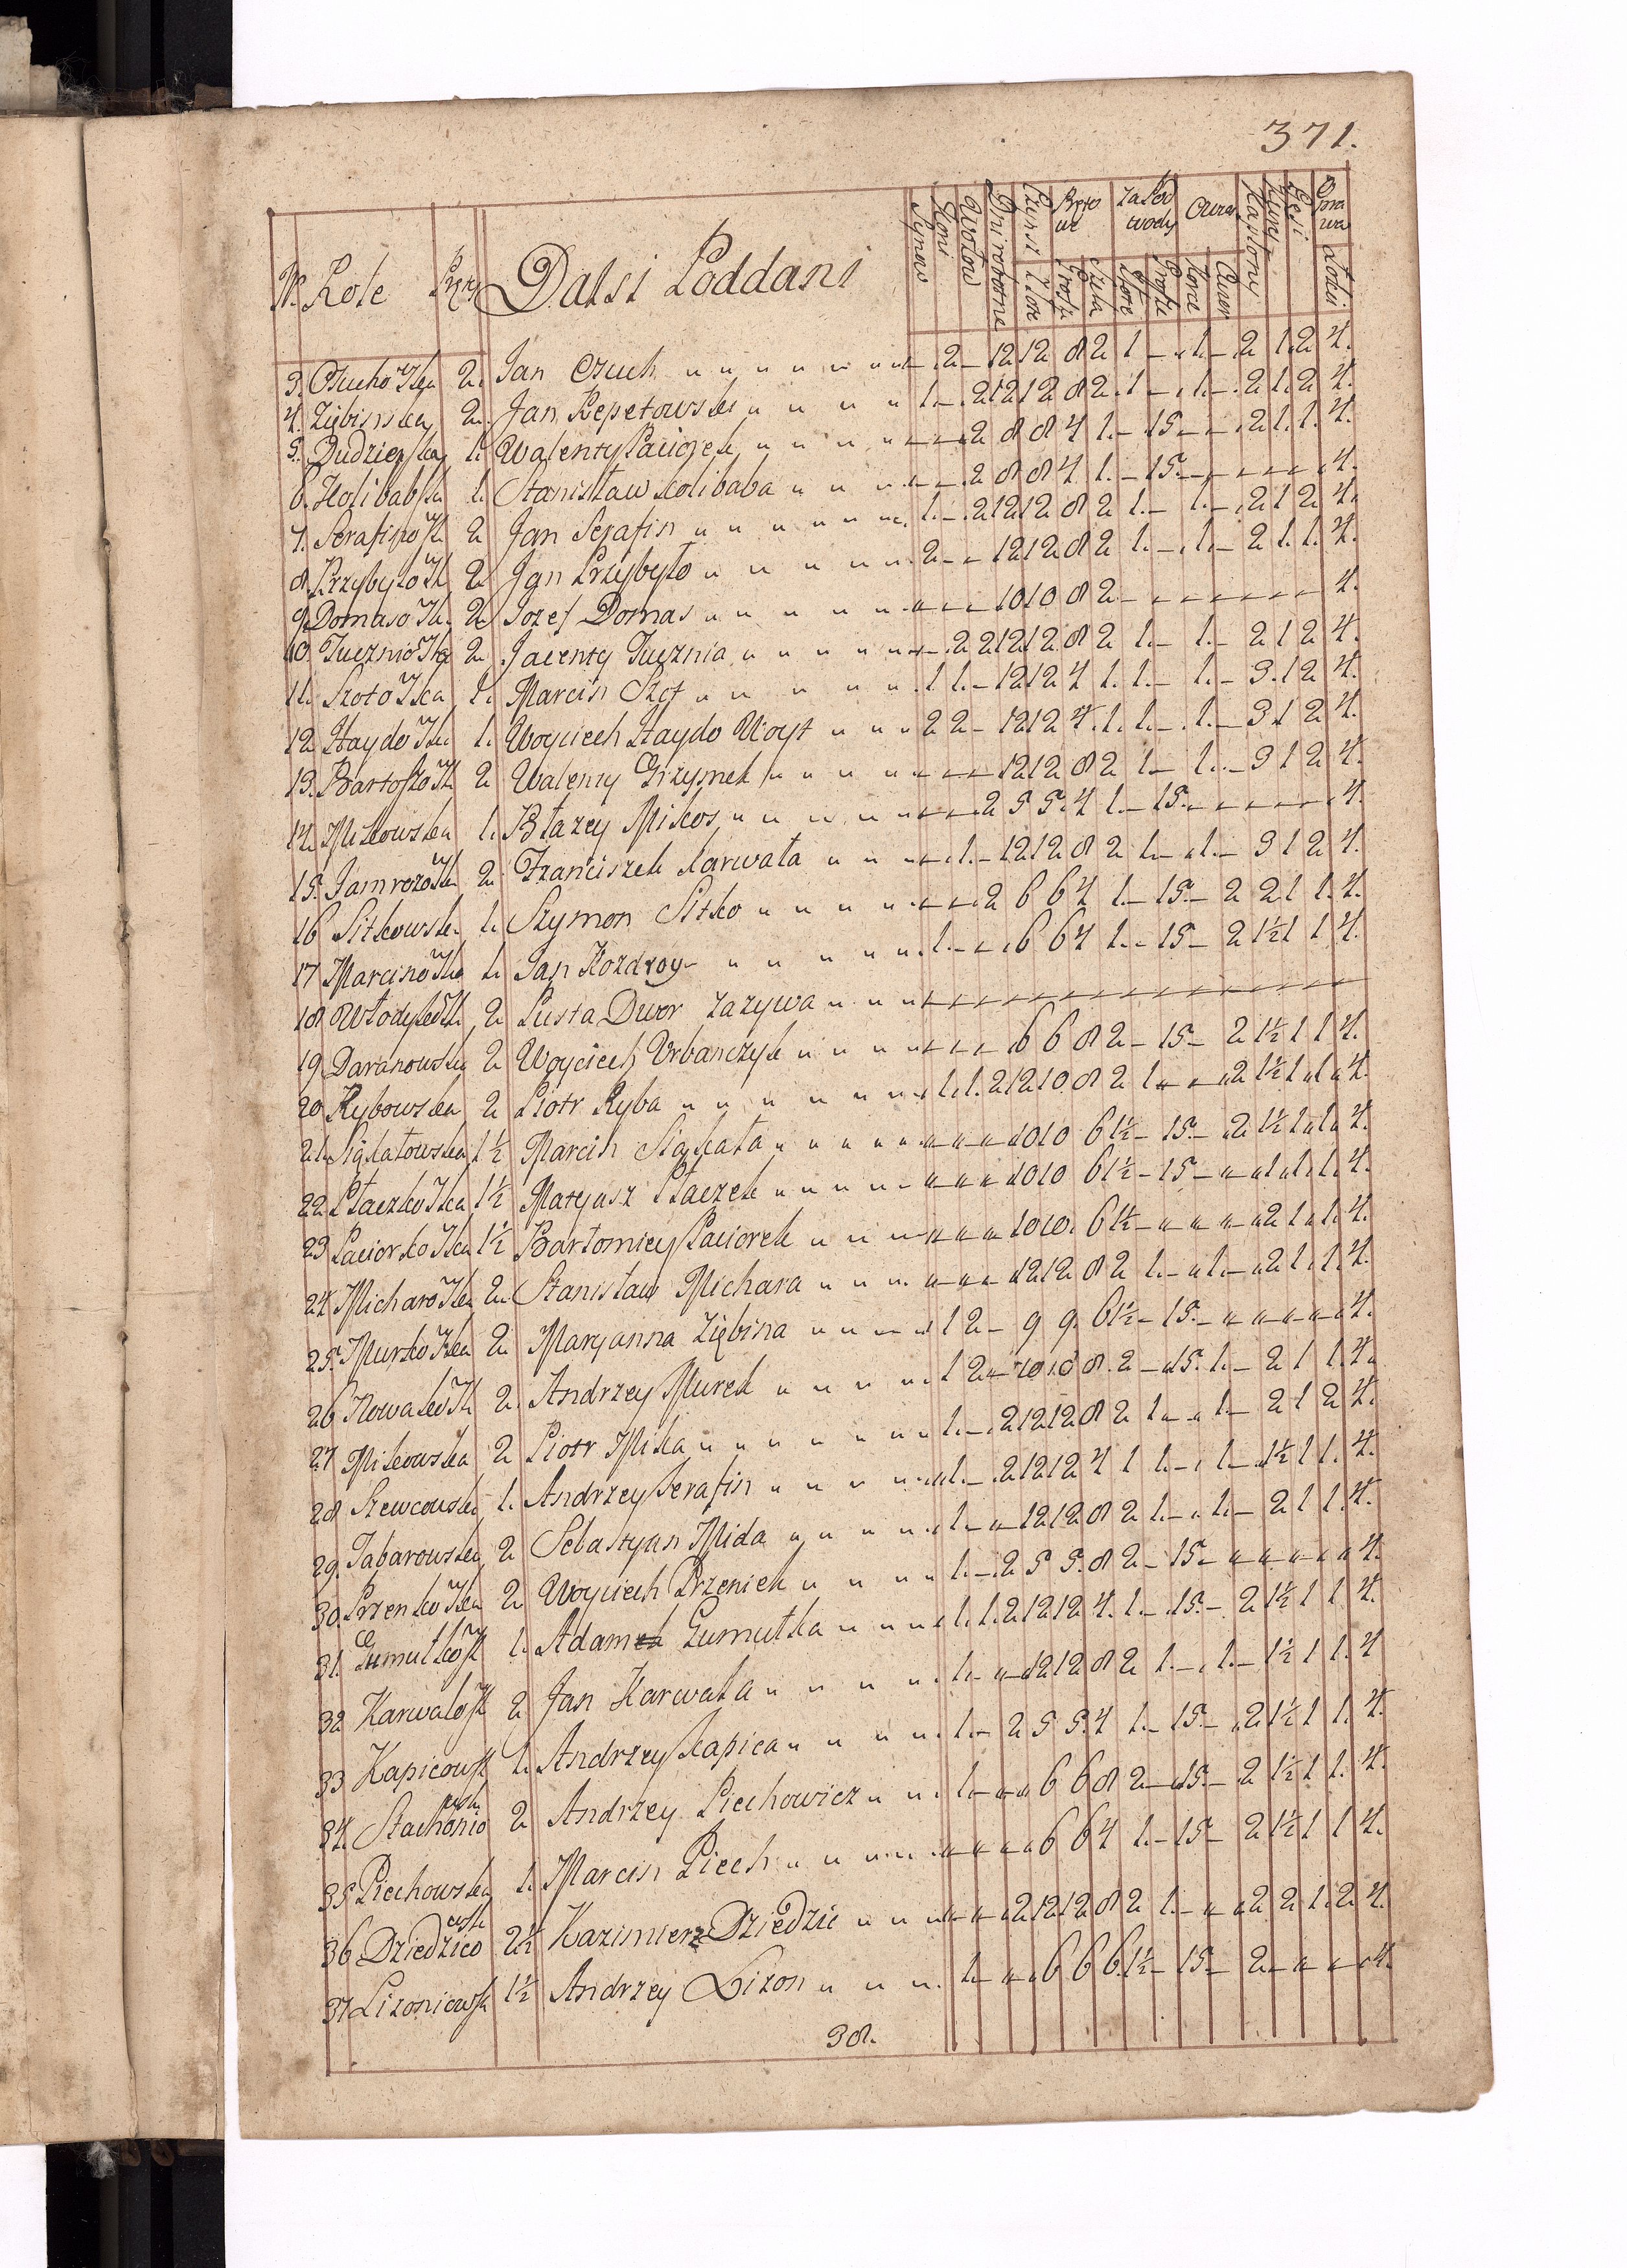 371.
Nr. Role Pręty Dalsi Poddani Synow Koni Wołow Dni robotne Czynsz Złote Ręko we Grosze Sztuka Za Pod wody Złote Grosze Owies Korce Cwier Kapłony Kury Gęsi Oprawa Łokci
3. Czucho Ska 2. Jan Czuch 2 12 12 8 2 1 1. 2 1. 2 4.
4. Ziębinska 2. Jan Repetowski 1. 2 12 12 8 2. 1 1. 2 1. 2 4.
5. 1. Walenty Paciorek 2 8 8 4 1. 15. 2 1. 1. 4.
6. Kolibabska 1. Stanisław Kolibaba 2 8 8 4 1. 15. 4.
7. Serafino Sk 2 Jan Serafin 1. 2 12 12 8 2 1. 1. 2 1 2 4.
8. Przybyło Sk 2 Jan Przybyło 2 12 12 8 2 1. 1. 2 1. 1. 4.
9. Domaso Sk. 2 Jozef Domas 10 10 8 2 4.
10. Tucznio Ska 2 Jacenty Tucznia 2 2 12 12 8 2 1. 1. 2 1 2 4.
11. Szoto Ska 1. Marcin Szot 1 1. 12 12 4 1. 1. 1. 3. 1 2 4.
12 Haydo Ska 1. Woyciech Haydo Woyt 2 2 12 12 4. 1. 1. 1. 3 1 2 4.
13. Bartoszo Sk 2 Walenty Grzymek 12 12 8 2 1. 1. 3 1 2 4.
14. Mikowska 1. Błazey Mikos 2 5 5. 4 1. 15. 4.
15. Jamrozo Sk 2 Franciszek Karwata 1. 12 12 8 2 1. 1. 3 1 2 4.
16 Sitkowska 1. Szymon Sitko 2 6 6 4 1. 15. 2 2 1 1. 4.
17 Marcino Ska 1. Jan Kozdroy 1. 6 6 4 1. 15. 2 1½ 1 1 4.
18 2 Pusta Dwor zazywa
19 Daranowska 2 Woyciech Urbanczyk 6 6 8 2 15 2 1½ 1 1 4.
20 Rybowska 2 Piotr Ryba 1. 1. 2 12 10 8 2 1 2 1½ 1. 1. 4.
21. 1½ Marcin 10 10 6 1½ 15. 2 1½ 1. 1. 4.
22. Ptaczko Ska 1½ Matyasz Ptaczek 10 10 6 1½ 15. 1. 1. 1. 4.
23 Paciorko Ska 1½ Bartomiey Paciorek 10 10. 6 1½ 2 1. 1. 4.
24. Micharo Ska 2 Stanisław Michara 12 12 8 2 1. 1. 2 1. 1. 4.
25. Murko Ska 2 Maryanna Ziębina 1 2 9 9. 6 1½ 15. 4.
26 Nowako Sk 2. Andrzey Murek 1 2 10 10 8. 2 15. 1. 2 1 1. 4.
27 Mikowska 2 Piotr Mika 1. 2 12 12 8 2 1. 1. 2 1 2 4.
28 Szewcowska 1. Andrzey Serafin 1. 2 12 12 4 1 1. 1. 1½ 1 1. 4.
29. Tabarowska 2 Sebastyan Mida 1. 12 12 8 2 1. 1. 2 1 1. 4.
30. Przenko Ska 2 Woyciech Przeniek 1. 2 5 5. 8 2 15. 4.
31. Gumutko Sk 1. Adam Gumutka 1. 1. 2 12 12 4. 1. 15. 2 1½ 1 1 4.
32 Karwato Sk 2 Jan Karwata 1. 12 12 8 2 1. 1. 1½ 1 1. 4
33 Kapicowsk 1. Andrzey Kapica 1. 2 5 5. 4 1. 15. 2 1½ 1 1. 4.
34. Stachonio wska 2 Andrzey Piechowicz 1. 6 6 8 2 15. 2 1½ 1 1. 4.
35. Piechowska 1. Marcin Piech 6 6 4 1. 15. 2 1½ 1 1 4.
36 Dziedzico wska 2½ Kazimierz Dziedzic 2 12 12 8 2 1. 2 2 1. 2 4.
37 Lizoniowsk 1½ Andrzey Lizon 1. 6 6 6. 1½ 15. 2 4.
38.